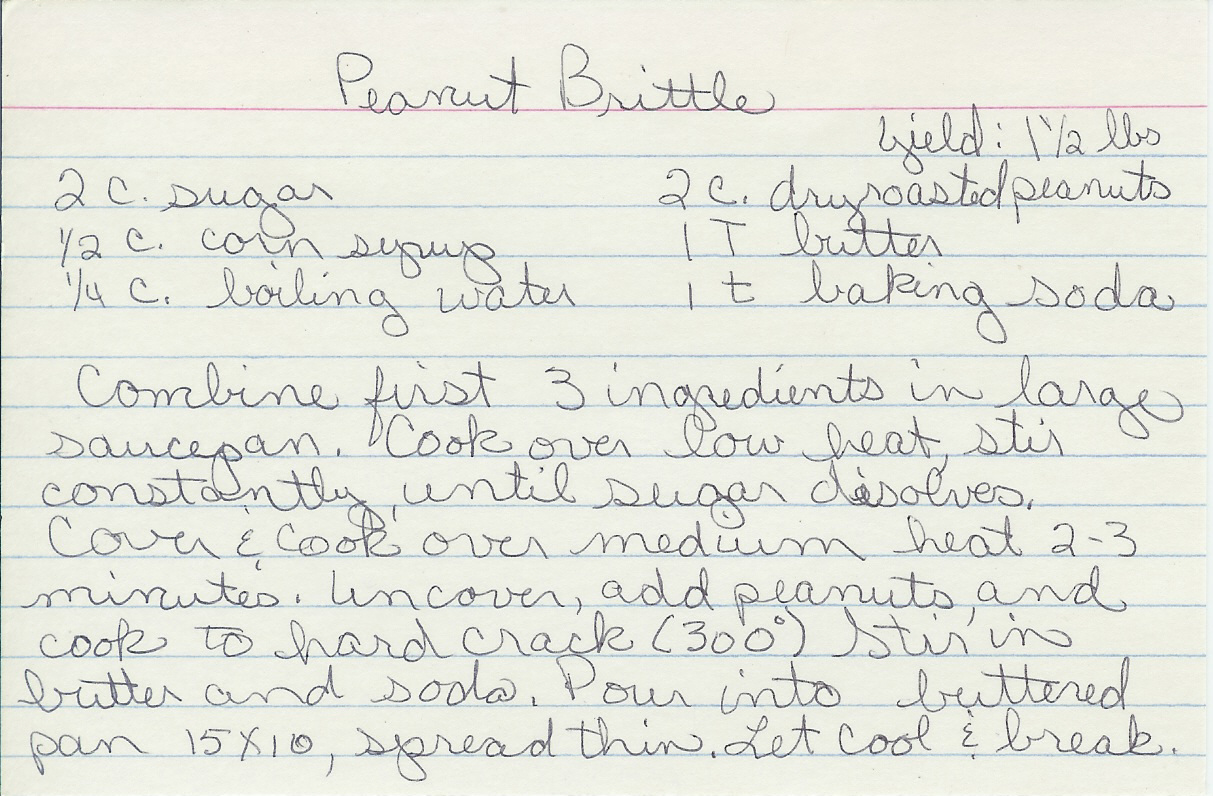 Peanut Brittle
Yield: 1 1/2 lbs
2 C. sugar 2 C. dry roasted peanuts
1/2 C. corn syrup 1 T butter
1/4 C. boiling water 1 t baking soda
Combine first 3 ingredients in large
saucepan. Cook over low heat, stir
constantly, until sugar disolves.
Cover & cook over medium heat 2-3
minutes. Uncover, add peanuts, and
cook to hard crack (300°) Stir in
butter and soda. Pour into buttered
pan 15X10, spread thin. Let cool & break.